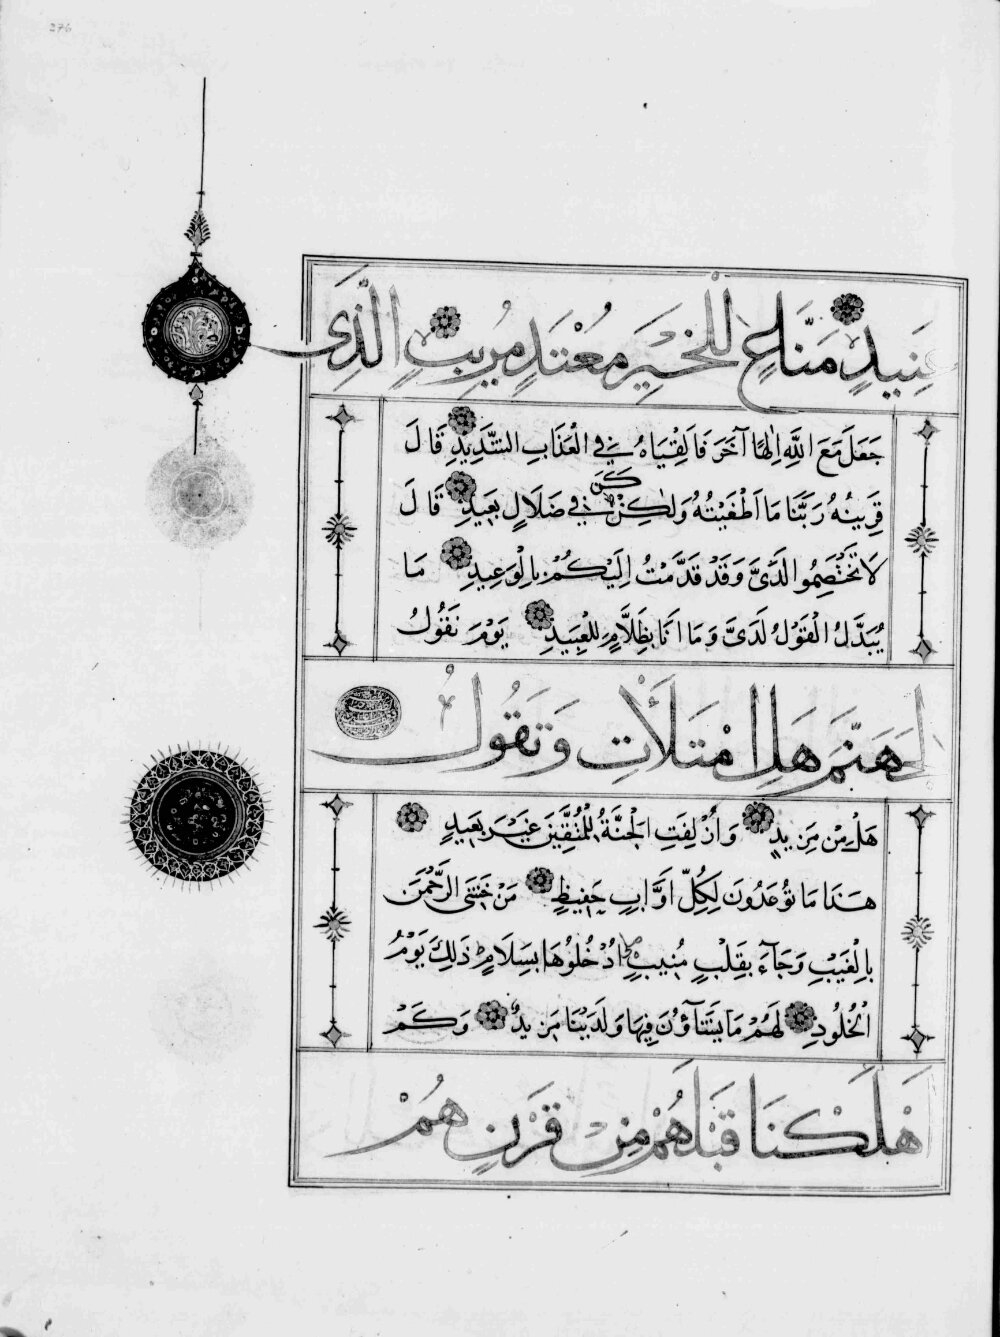 276
عَنِيدٍ مَنَّاعٍ لِلْخَيْرِ مُعْتَدٍ مُرِيبٍ الَّذِى
جَعَلَ مَعَ اللَّهِ اِلٰهًا آخَرَ فَاَلْقِيَاهُ فِي الْعَذَابِ الشَّدِيدِ قَالَ
قَرِينُهُ رَبَّنَا مَا اَطْغَيْتُهُ وَلٰكِنْ كَانَ فِي ضَلَالٍ بَعِيدٍ قَالَ
لَا تَخْتَصِمُوا لَدَىَّ وَقَدْ قَدَّمْتُ اِلَيْكُمْ بِالْوَعِيدِ مَا
يُبَدَّلُ الْقَوْلُ لَدَىَّ وَمَا اَنَا بِظَلَّامٍ لِلْعَبِيدِ يَوْمَ نَقُولُ
لِجَهَنَّمَ هَلِ امْتَلَأْتِ وَتَقُولُ
هَلْ مِنْ مَزِيدٍ وَأُزْلِفَتِ الْجَنَّةُ لِلْمُتَّقِينَ غَيْرَ بَعِيدٍ
هَذَا مَا تُوعَدُونَ لِكُلِّ اَوَّابٍ حَفِيظٍ مَنْ خَشِىَ الرَّحْمَنَ
بِالْغَيْبِ وَجَاءَ بِقَلْبٍ مُنِيبٍ ادْخُلُوهَا بِسَلَامٍ ذَلِكَ يَوْمُ
الْخُلُودِ لَهُمْ مَا يَشَاؤُنَ فِيهَا وَلَدَيْنَا مَزِيدٌ وَكَمْ
اَهْلَكْنَا قَبْلَهُمْ مِنْ قَرْنٍ هُمْ